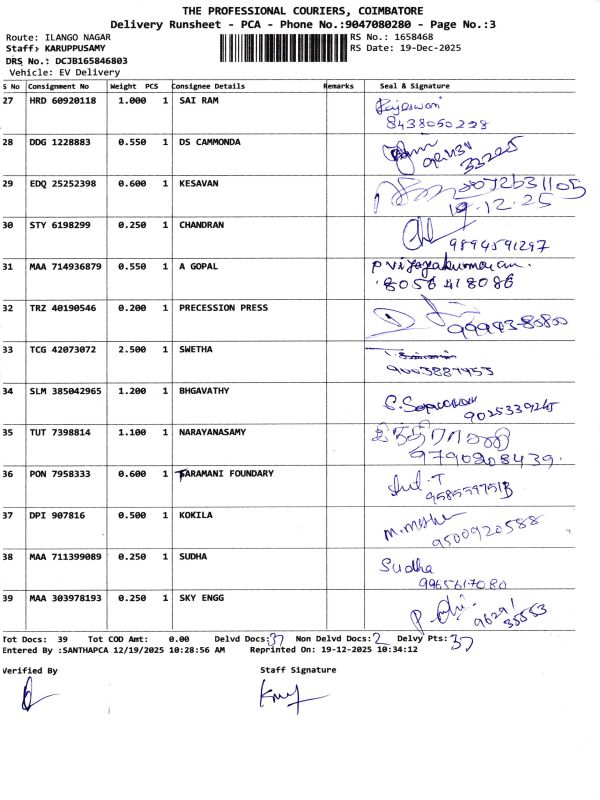 THE PROFESSIONAL COURIERS, COIMBATORE
Delivery Runsheet - PCA - Phone No.:9047080280 - Page No.:3
Route: ILANGO NAGAR
RS No.: 1658468
Staff: KARUPPUSAMY
RS Date: 19-Dec-2025
DRS No.: DCJB165846803
Vehicle: EV Delivery
S No Consignment No Weight PCS Consignee Details Remarks Seal & Signature
27 HRD 60920118 1.000 1 SAI RAM Rajeswari
8438050228
28 DDG 1228883 0.550 1 DS CAMMONDA
33225
29 EDQ 25252398 0.600 1 KESAVAN
19.12.25
30 STY 6198299 0.250 1 CHANDRAN
9894591297
31 MAA 714936879 0.550 1 A GOPAL P Vijayakumaran.
8056418086
32 TRZ 40190546 0.200 1 PRECESSION PRESS
99943-80800
33 TCG 42073072 2.500 1 SWETHA
9003887453
34 SLM 385042965 1.200 1 BHGAVATHY
9025339245
35 TUT 7398814 1.100 1 NARAYANASAMY
9790808439.
36 PON 7958333 0.600 1 TARAMANI FOUNDARY
37 DPI 907816 0.500 1 KOKILA
9500920588
38 MAA 711399089 0.250 1 SUDHA Sudha
9965617080
39 MAA 303978193 0.250 1 SKY ENGG
96291
35553
Tot Docs: 39 Tot COD Amt: 0.00 Delvd Docs: 37 Non Delvd Docs: 2 Delvy Pts: 37
Entered By :SANTHAPCA 12/19/2025 10:28:56 AM Reprinted On: 19-12-2025 10:34:12
Verified By Staff Signature